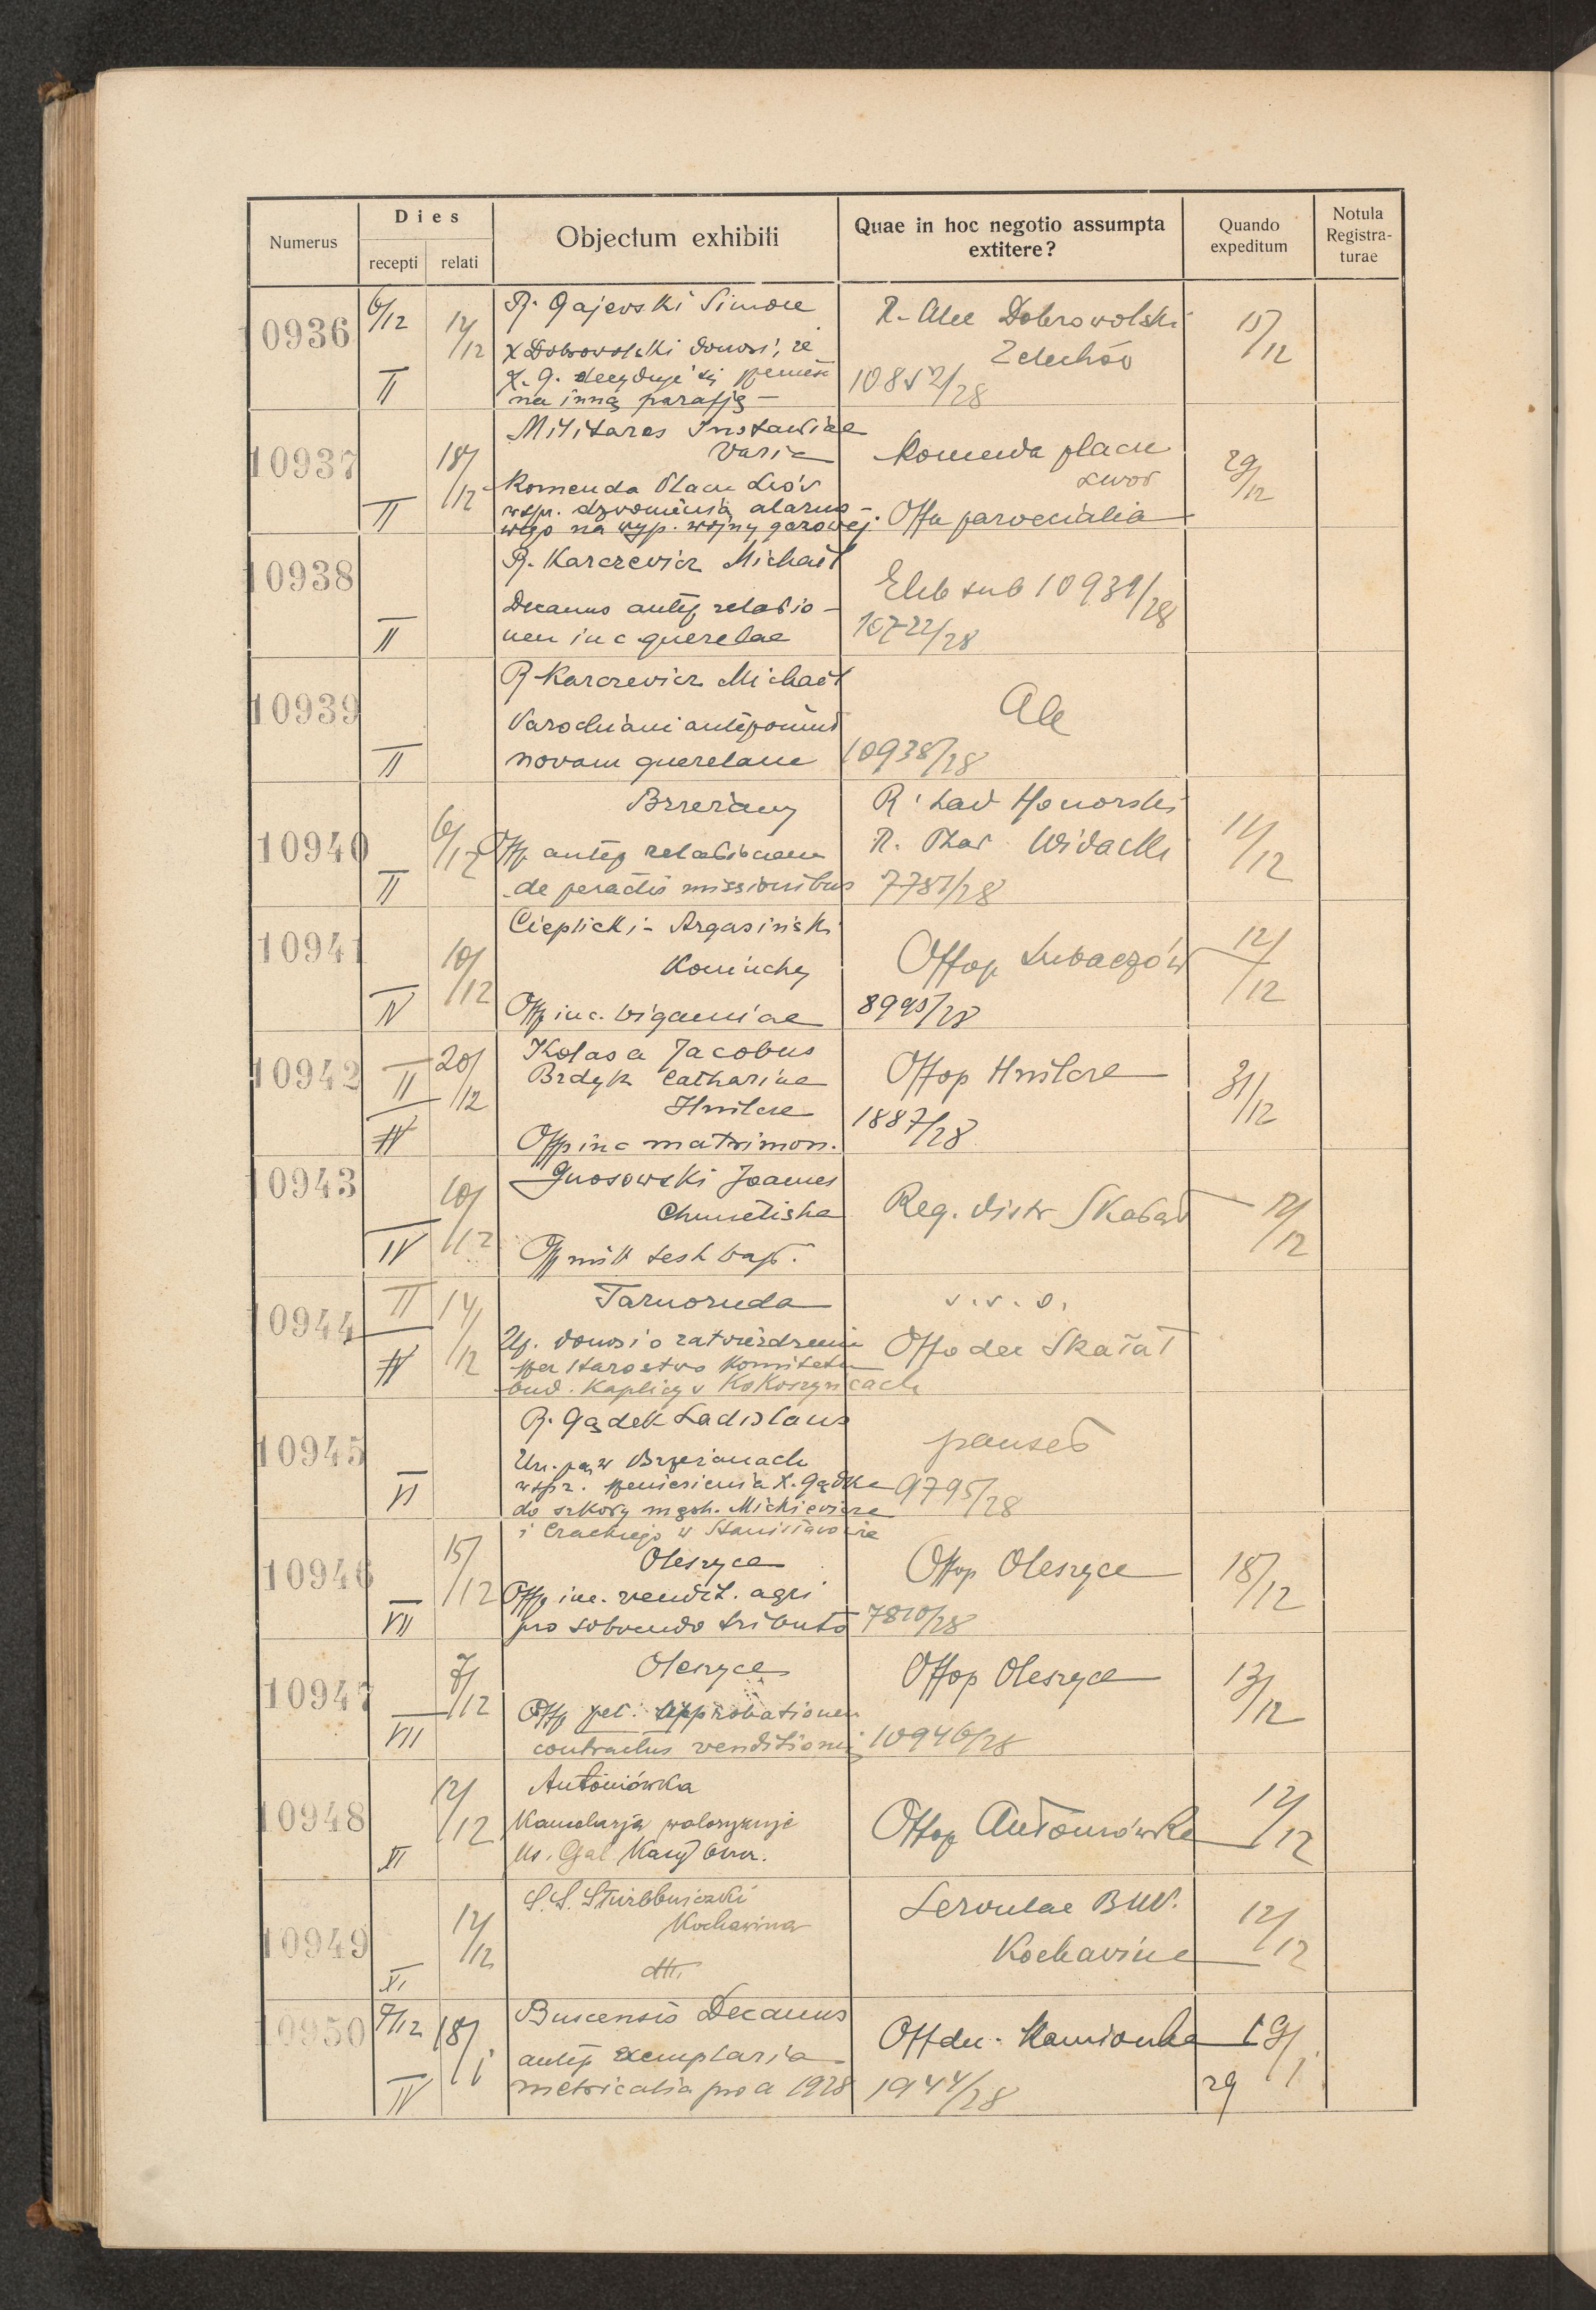 Numerus
Dies
recepti
relati
Objectum exhibiti
Quae in hoc negotio assumpta
extitere?
Quando
expeditum
Notula
Registra-
turae
10936
6/12
12/12
II
R. Gajewski Simone
X Dobrowolski donosi, że
X. G. decyduje się
na inną parafję —
R. Alex Dobrowolski
Żelechów
10852/28
15/12
10937
18/12
II
Militares Instantiae
Varia
Komenda Placu Lwów
wspr. dzwonienia alarmo-
wego na wyp. wojny gazowej.
Komenda placu
Lwów
Offa parvecialia
29/12
10938
II
R. Karczewicz Michaël
Decanus antep relatio-
nem inc querelae
Exh sub 10939/28
10722/28
10939
II
R Karczewicz Michaël
Parochiani anteponunt
novam querelam
Ale
10938/28
10940
6/12
II
Brzeżany
Off antep relationem
de peractis missionibus
R. Lad Honorski
R. Thad Widacki
7787/28
11/12
10941
10/12
IV
Cieplicki - Argasiński
Off inc. bigamiae
Offop Lubaczów
8995/28
12/12
10942
II
20/12
IV
Kolasa Jacobus
Brdyk Catharina
Hnilcze
Offp inc matrimon.
Offop Hnilcze
1887/28
31/12
10943
10/12
IV
Gnosowski Joannes
Chmieliska
Off mitt test bapt.
Reg. distr Skałat
12/12
10944
II
14/12
IV
Tarnoruda
Up. donosi o zatwierdzeniu
Starostwo Komitetu
bud. Kaplicy w Kokoszyńcach
v. s. o.
Offo dec Skałat
10945
VI
R. Gądek Ladislaus
Un. par w Brzeżanach
wspr. przeniesienia X. Gądka
do szkoły męsk. Mickiewicza
i Czackiego w Stanisławowie
9795/28
10946
15/12
VII
Oleszyce
Offp inc. vendit. agri
pro solvendo tributo
Offop Oleszyce
7810/28
18/12
10947
7/12
VII
Oleszyce
Offp pet. approbationem
contractus venditionis
Offop Oleszyce
10946/28
13/12
10948
12/12
XI
Antoniówka
Kancelarja waloryzuje
Offop Antoniówka
12/12
10949
12/12
XI
S. S. Służebniczki
Kochawina
dtto
Servulae BMV.
Kochavina
12/12
10950
7/12
18/1
IV
Buscensis Decanus
antep exemplaria
metricalia pro a 1928
Offdec. Kamionka
1944/28
19/1
29